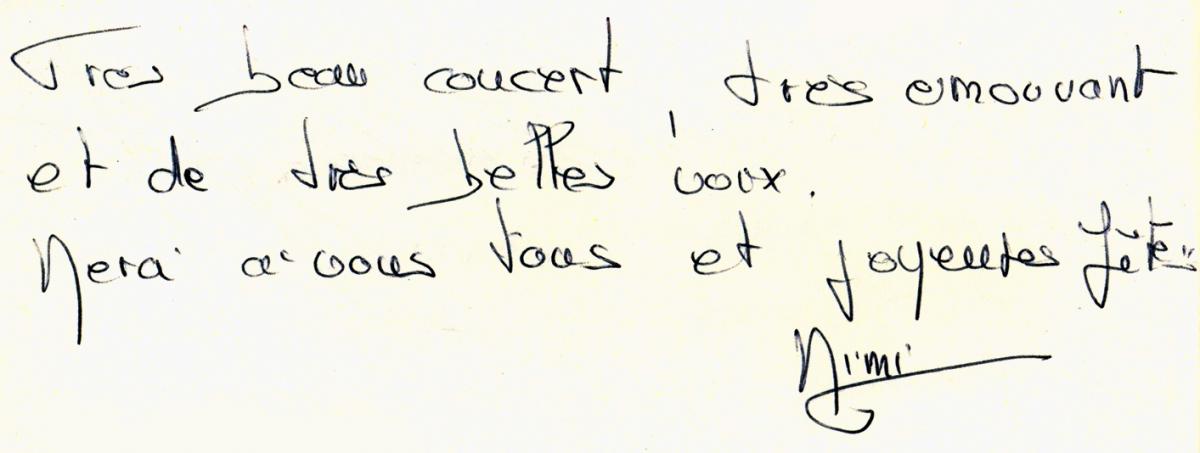 Tres beau concert, tres emouvant
et de tres belles voix.
Merci à vous tous et joyeuses fêtes
Mimi